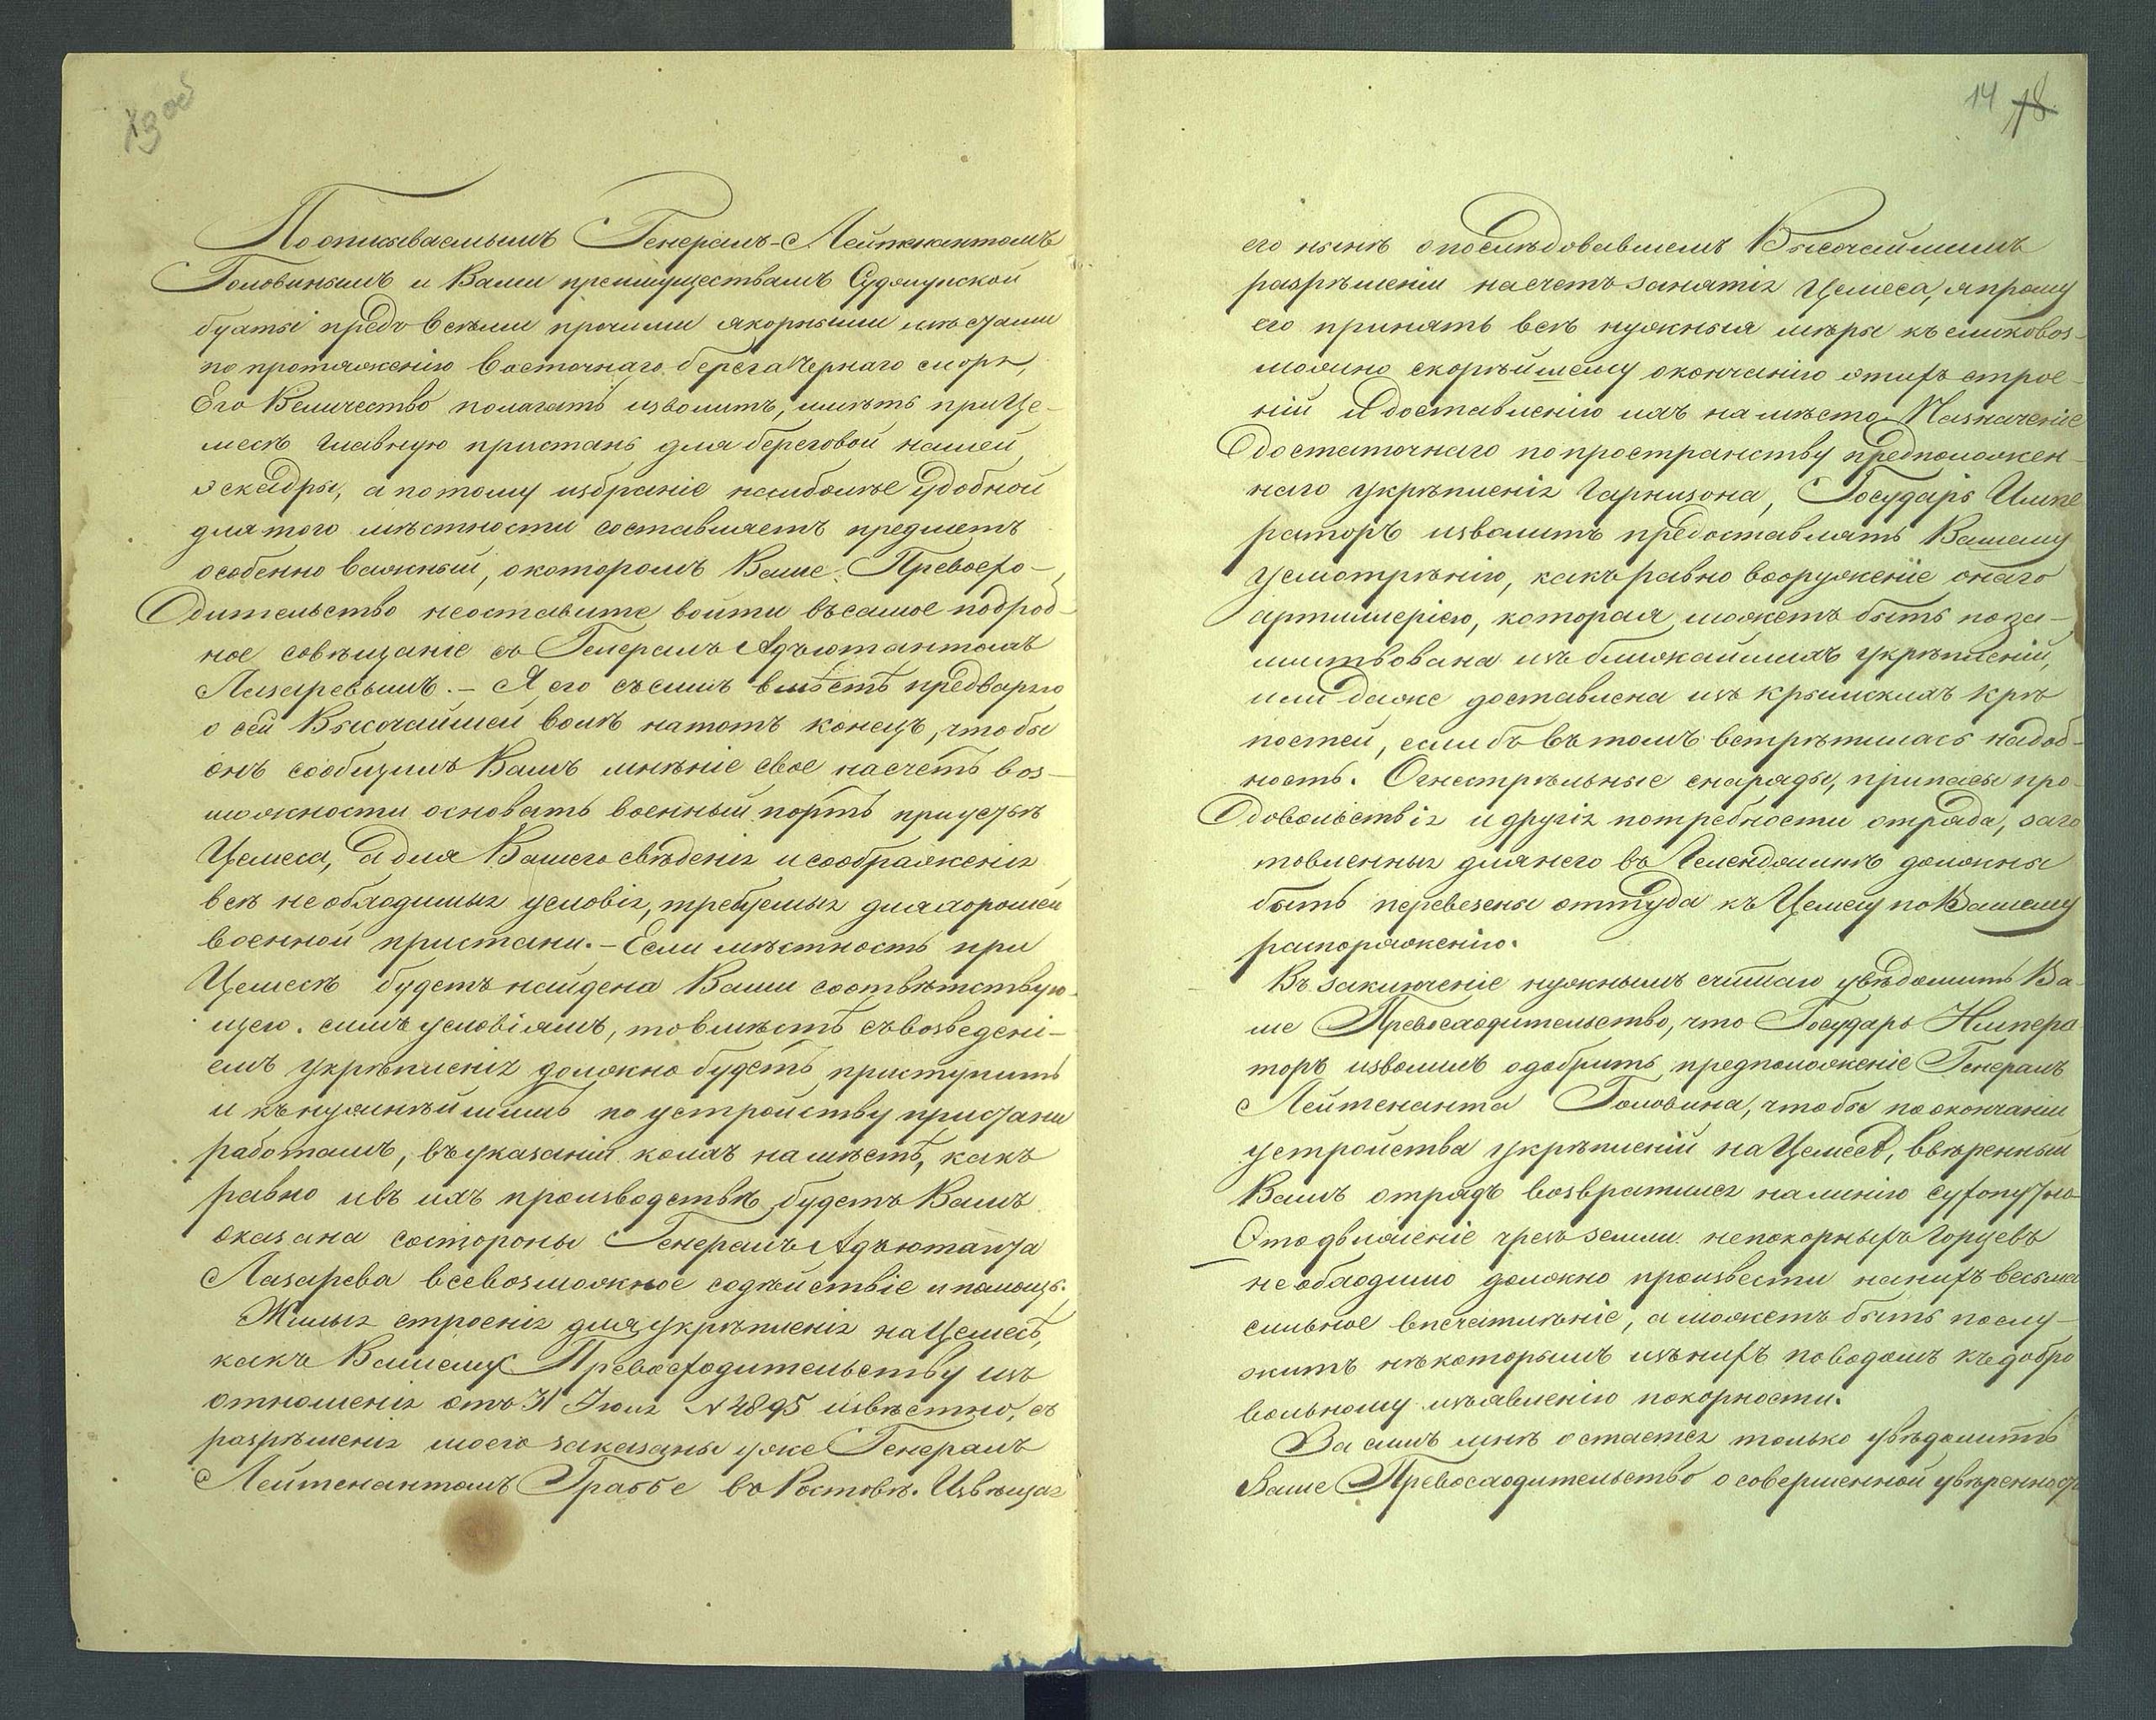 13 об
По описываемымъ Генералъ-Лейтенантомъ
Головинымъ и Вами преимуществамъ Суджукской
бухты предъ всѣми прочими якорными мѣстами
по протяженію восточнаго берега Чернаго моря,
Его Величество полагать изволитъ, имѣть при Це-
месѣ главную пристань для береговой нашей
эскадры, а потому избраніе наиболѣе удобной
для того мѣстности составляетъ предметъ
особенно важный, о которомъ Ваше Превосхо-
дительство неоставите войти въ самое подроб-
ное совѣщаніе съ Генералъ Адъютантомъ
Лазаревымъ. – Я его съ симъ вмѣстѣ предваряю
о сей Высочайшей волѣ на тотъ конецъ, чтобы
онъ сообщилъ Вамъ мнѣніе свое насчетъ воз-
можности основать военный портъ при устьѣ
Цемеса, а для Вашего свѣденія и соображенія
всѣ необходимыя условія, требуемыя для хорошей
военной пристани. – Если мѣстность при
Цемесѣ будетъ найдена Вами соотвѣтствую-
щею симъ условіямъ, то вмѣстѣ съ возведені-
емъ укрѣпленія должно будетъ приступить
и къ нужнѣйшимъ по устройству пристани
работамъ, въ указаніи коихъ на мѣстѣ, какъ
равно и въ ихъ производствѣ будетъ Вамъ
оказана со стороны Генералъ Адъютанта
Лазарева всевозможное содѣйствіе и помощь.
Жилыя строенія для укрѣпленія на Цемесѣ,
какъ Вашему Превосходительству изъ
отношенія отъ 31 Іюля № 4895 извѣстно, съ
разрѣшенія моего заказаны уже Генералъ
Лейтенантомъ Граббе въ Ростовѣ. Извѣщая
14 18
его нынѣ о послѣдовавшемъ Высочайшимъ
разрѣшеніи насчетъ занятія Цемеса, я прошу
его принять всѣ нужныя мѣры къ сколь воз-
можно скорѣйшему окончанію этихъ строе-
ній и доставленію ихъ на мѣсто. Назначеніе
достаточнаго по пространству предположен-
наго укрѣпленія гарнизона, Государь Импе
раторъ изволитъ предоставлять Вашему
усмотрѣнію, какъ равно вооруженіе онаго
артиллеріею, которая можетъ быть поза-
имствована изъ ближайшихъ укрѣпленій,
или даже доставлена изъ крымскихъ крѣ
постей, если бъ въ томъ встрѣтилась надоб-
ность. Огнестрѣльные снаряды, припасы про-
довольствія и другія потребности отряда, заго
товленныя для него въ Геленджикѣ должны
быть перевезены оттуда къ Цемесу по Вашему
распоряженію.
Въ заключеніе нужнымъ считаю увѣдомить Ва-
ше Превосходительство, что Государь Импера
торъ изволилъ одобрить предположеніе Генералъ
Лейтенанта Головина, чтобы по окончаніи
устройства укрѣпленій на Цемесѣ, ввѣренный
Вамъ отрядъ возвратился на линію сухопутно
Это движеніе чрезъ земли непокорныхъ Горцевъ
необходимо должно произвести на нихъ весьма
сильное впечатлѣніе, а можетъ быть послу-
житъ нѣкоторымъ изъ нихъ поводомъ къ добро
вольному изъявленію покорности.
За симъ мнѣ остается только увѣдомить
Ваше Превосходительство о совершенной увѣренност